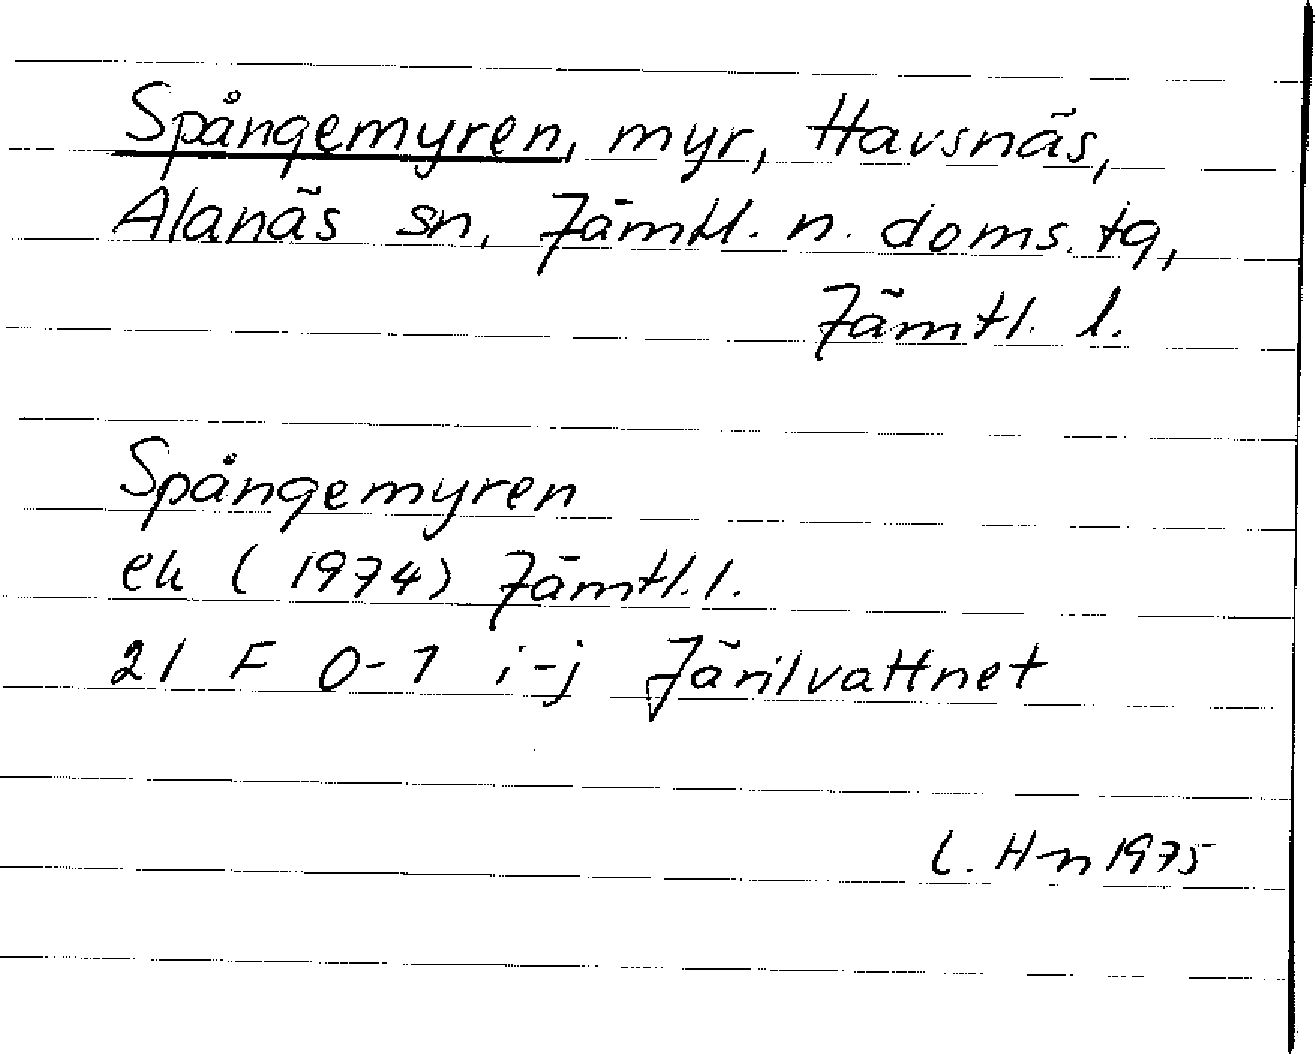 Spångemyren, myr, Havsnäs,
Alanäs sn, Jämtl. n. doms. tg,
Jämtl. l.
Spångemyren
ek (1974) Jämtl. l.
21 F 0-1 i-j Järilvattnet
L. H-n 1975